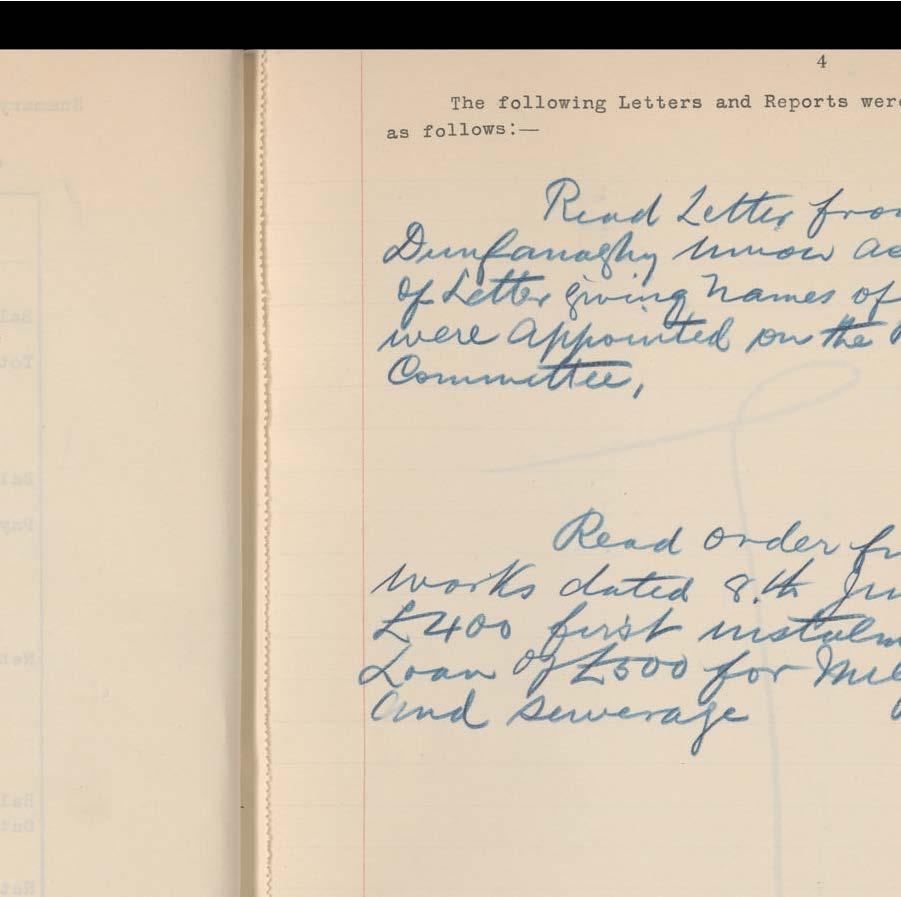 4
The following Letters and Reports were
as follows:—
Read Letter from
Dunfanaghy Union
of Letter giving names of
were appointed on the
Committee,
Read order
works dated 8.th
£400 first
Loan of £500 for
and sewerage